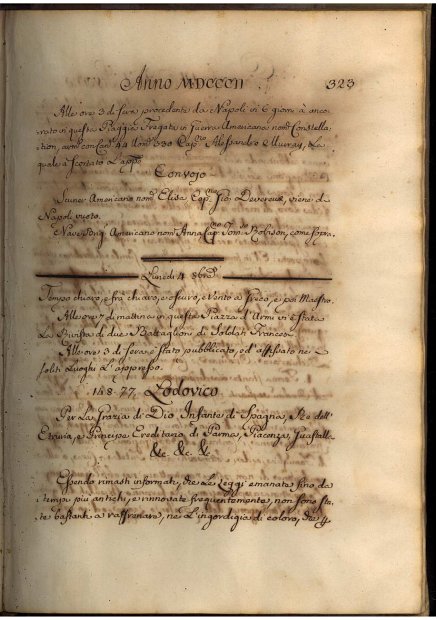 Anno MDCCCII 323
Alle ore 3 di sera procedente da Napoli in 6 giorni à anco-
rato in questa Piaggia Fregata in Guerra Americana nom.ª Constella-
ction, arm.ª con Can.i 44 Uom.i 330 Cap.no Alessandro Murray, La
quale à scortato l'app.º
Convojo
Scuner Americano nom.º Elisa Cap.no Gio. Devereux, viene da
Napoli vuoto.
Nave Americano nom.º Anna Cap.no Tom. Robison, come sopra.
Lunedi 4 8bre
Tempo chiaro, e frà chiaro, e oscuro, e Vento a fresco, e poi Maestro.
Alle ore 7 di mattina in questa Piazza d'Armi vi è stata
La Rivista di due Battaglioni di Soldati Francesi
Alle ore 3 di sera, è stato pubblicato, ed affissato ne
soliti Luoghi l'appresso.
148.77. Lodovico
Per La Grazia di Dio Infante di Spagna, Rè dell'
Etruria, e Principe Ereditario di Parma, Piacenza, Guastalla
&c. &c. &c.
Essendo rimasti informati, che Le Leggi emanate fino da
tempi più antichi, e rinnovate frequentemente, non sono sta-
te bastanti a raffrenare, nè L'ingordigia di coloro, che